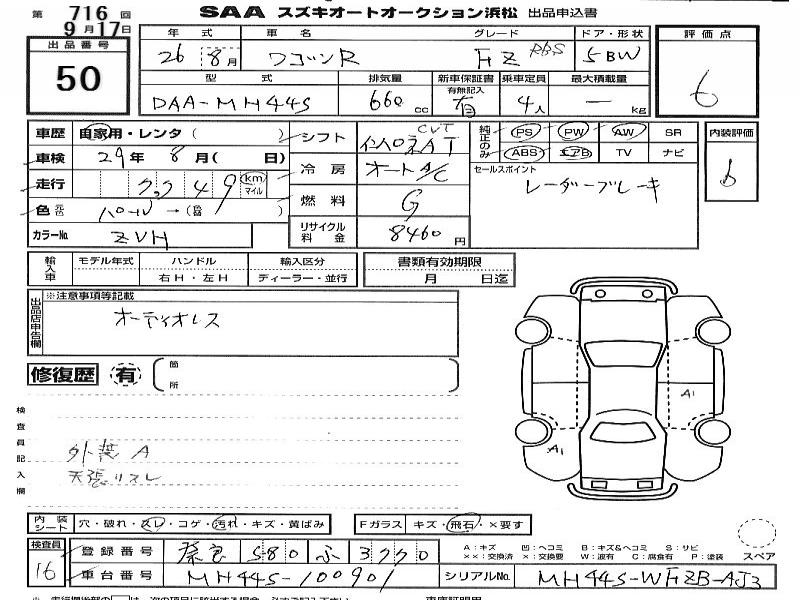 第 716 回 SAA スズキオートオークション浜松 出品申込書
9月17日
出品番号 50
年式 車名 グレード ドア・形状
26 8月 ワゴンR FZ RBS 5BW
型式 排気量 新車保証書 有無記入 乗車定員 最大積載量
DAA-MH44S 660cc 有 4人 — kg
評価点 6
車歴 自家用・レンタ( )
車検 29年 8月( 日)
走行 km マイル
色 元色 パール →(色替 )
カラーNo. ZVH
シフト インパネAT CVT
冷房 オートA/C
燃料 G
リサイクル料金 8460円
純正のみ PS PW AW SR
ABS エアB TV ナビ
セールスポイント
レーダーブレーキ
内装評価 b
輸入車 モデル年式 ハンドル 輸入区分
右H・左H ディーラー・並行
書類有効期限
月 日迄
出品店申告欄 ※注意事項等記載
オーディオレス
修復歴 有 箇所
検査員記入欄
外装 A
天張リスレ
A1
A1
内装シート 穴・破れ・スレ・コゲ・汚れ・キズ・黄ばみ
Fガラス キズ・飛石・×要す
検査員 16
登録番号 580 ふ 3770
車台番号 MH44S-100901
A:キズ 凹:ヘコミ B:キズ&ヘコミ S:サビ
××:交換済 ×:交換要 W:波有 C:腐食有 P:塗装
スペア
シリアルNo. MH44S-WFZB-AJ3